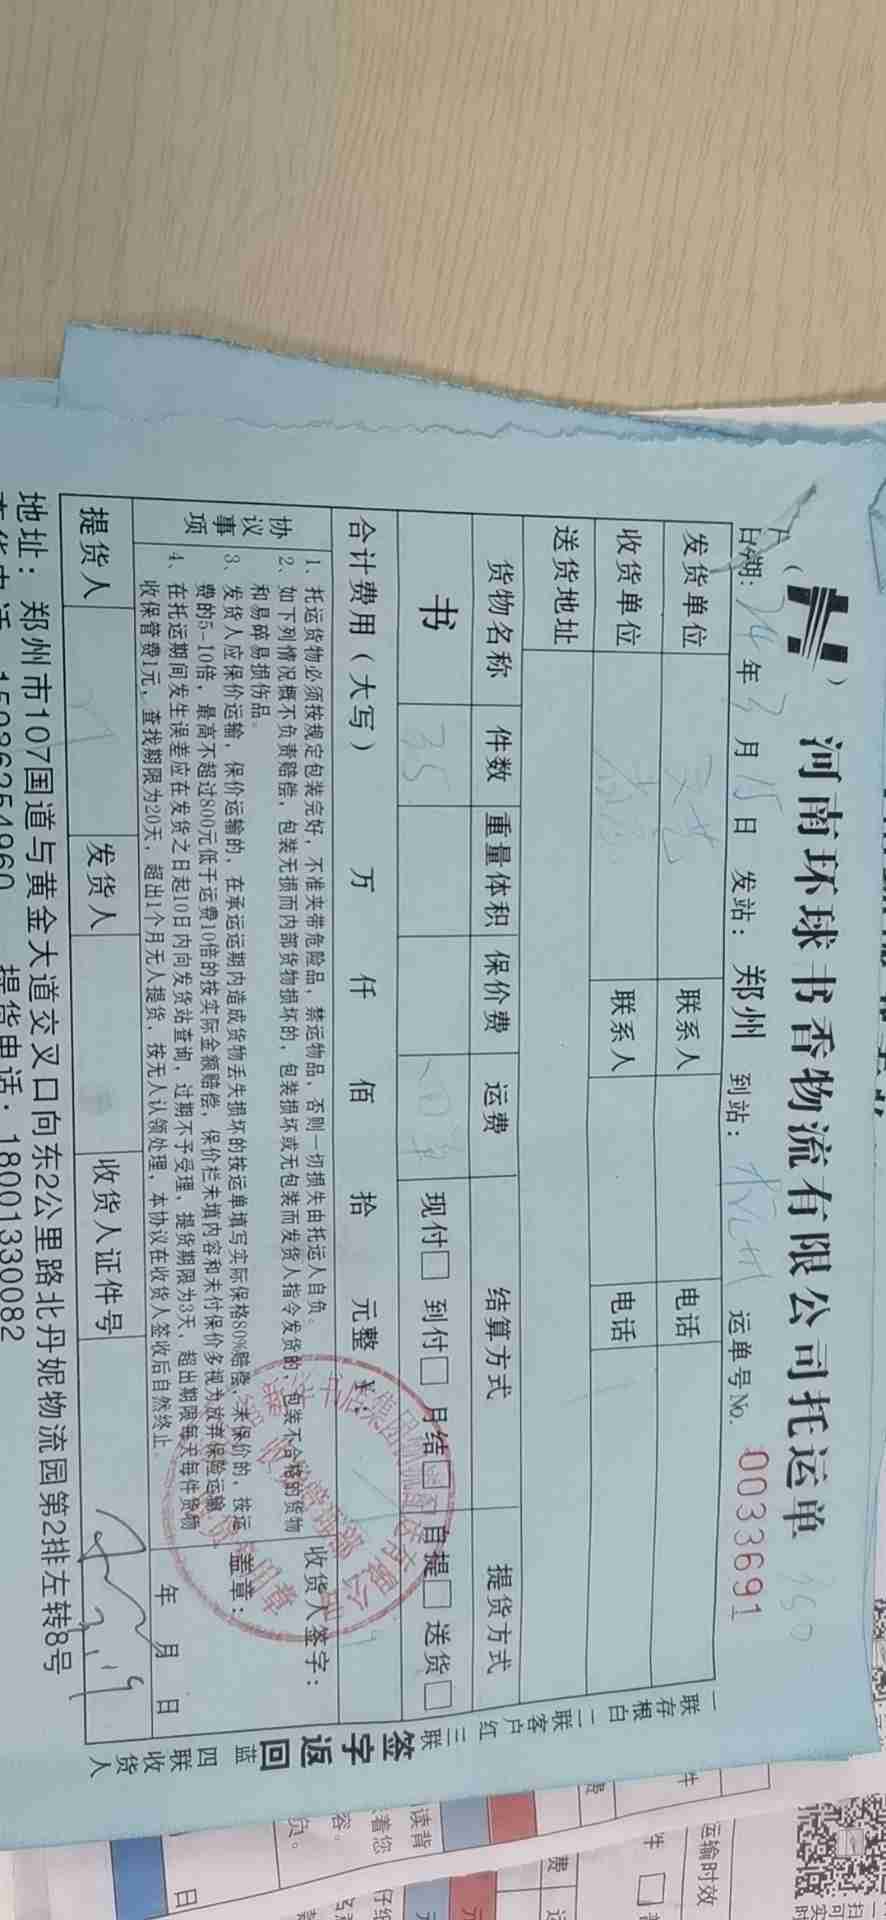 河南环球书香物流有限公司托运单
日期: 24 年 3 月 15 日 发站: 郑州 到站: 杭州 运单号No. 0033691
发货单位 文艺 联系人 电话
收货单位 联系人 电话
送货地址
货物名称 件数 重量体积 保价费 运费 结算方式 提货方式
书 35 回单 现付□ 到付□ 月结□ 自提□ 送货□
合计费用（大写） 万 仟 佰 拾 元整 ¥:
协议事项
1、托运货物必须按规定包装完好，不准夹带危险品，禁运物品，否则一切损失由托运人自负。
2、如下列情况概不负责赔偿，包装无损而内部货物损坏的，包装损坏或无包装而发货人指令发货的，包装不合格的货物
和易碎易损伤品。
3、发货人应保价运输，保价运输的，在承运期内造成货物丢失损坏的按运单填写实际保格80%赔偿，未保价的，按运
费的5-10倍，最高不超过800元低于运费10倍的按实际金额赔偿，保价栏未填内容和未付保价多视为放弃保险运输。
4、在托运期间发生误差应在发货之日起10日内向发货站查询，过期不予受理，提货期限为3天，超出期限每天每件货物
收保管费1元，查找期限为20天，超出1个月无人提货，按无人认领处理，本协议在收货人签收后自然终止。
收货人签字:
盖章:
年 月 日
提货人 发货人 收货人证件号
3.19
地址: 郑州市107国道与黄金大道交叉口向东2公里路北丹妮物流园第2排左转8号
提货电话: 18001330082
一联存根白 二联客户红 三联签字返回蓝 四联收货人
运输时效